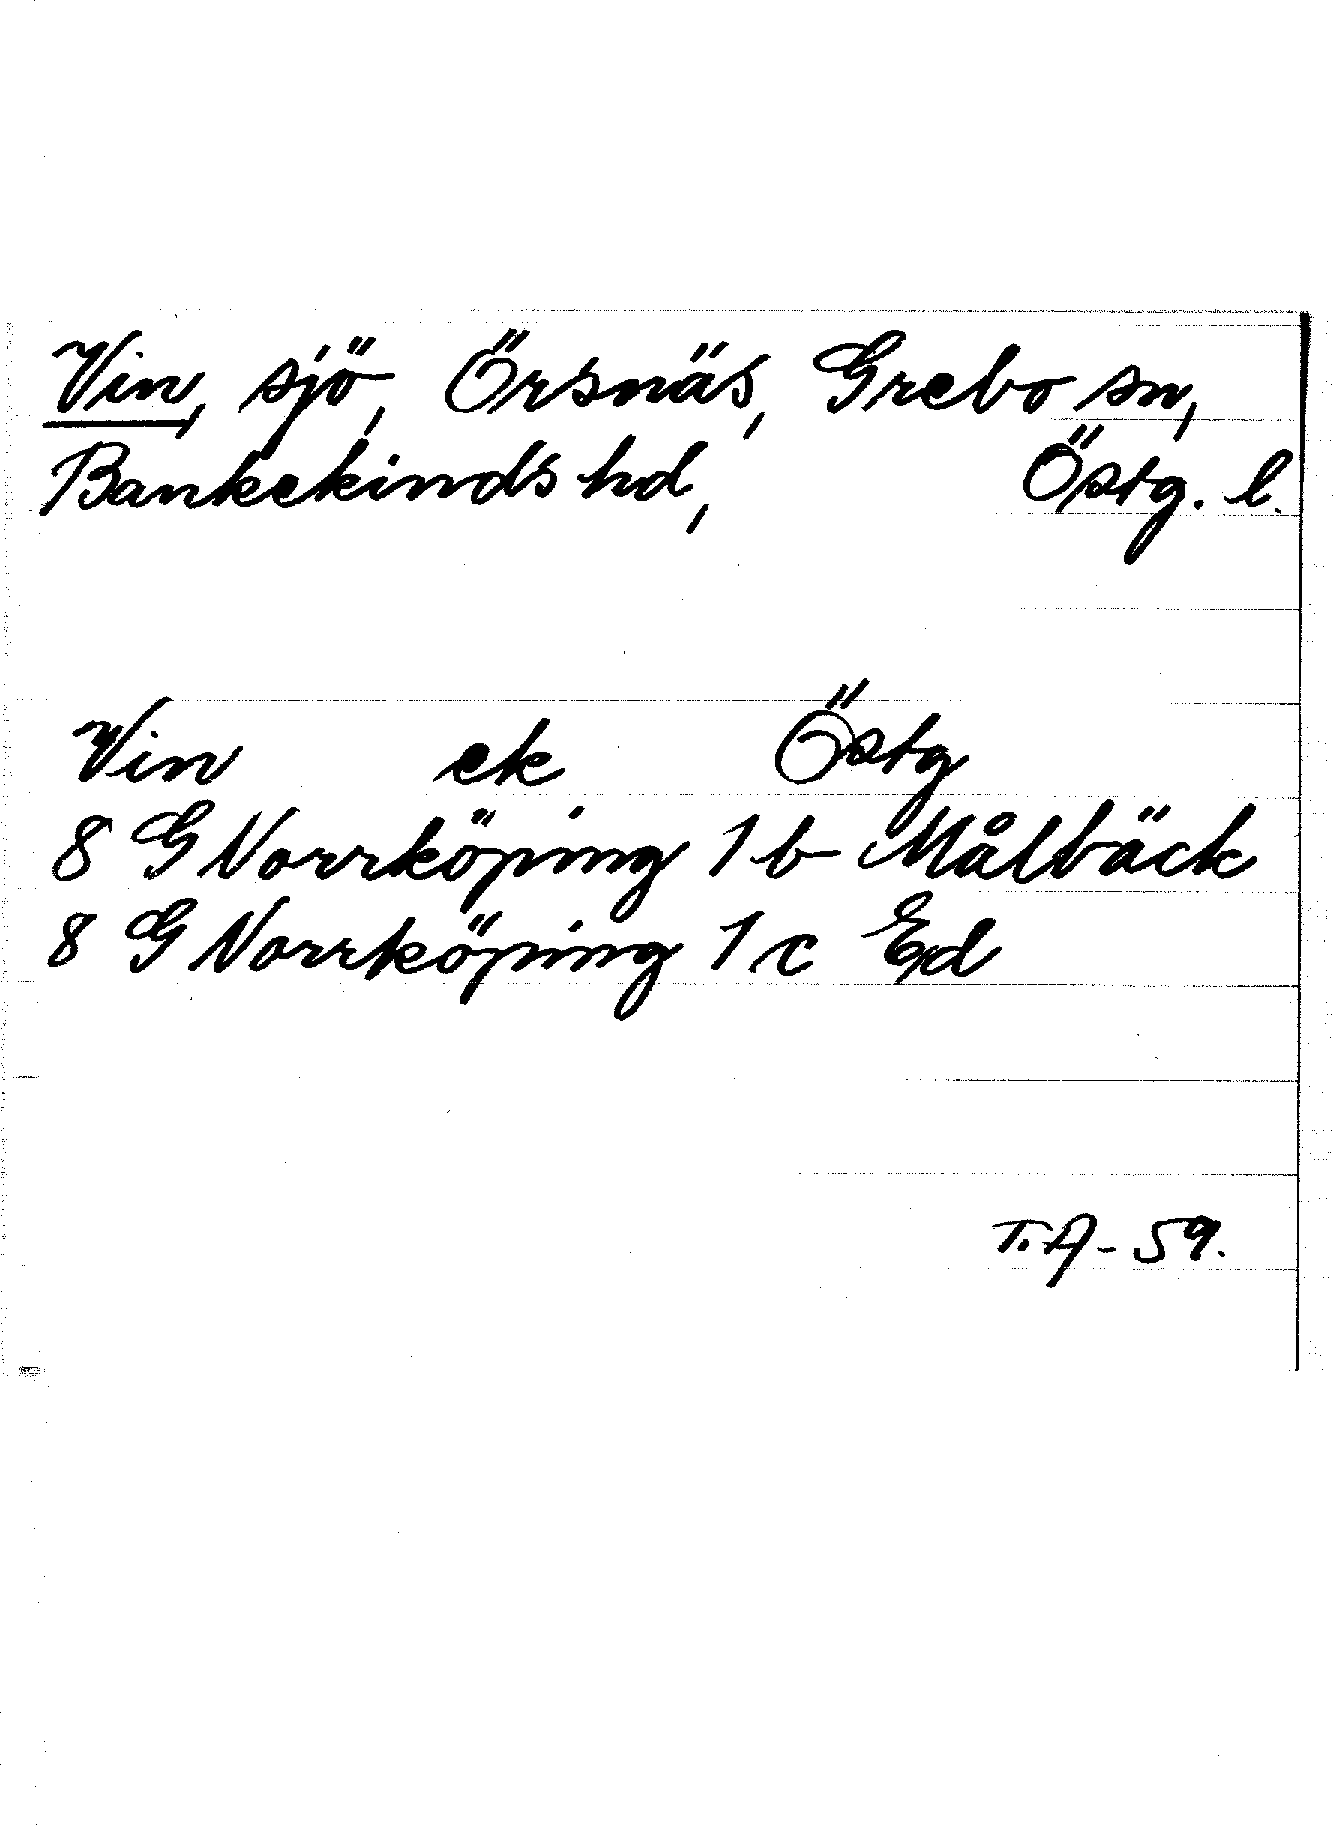 Vin, sjö, Örsnäs, Grebo sn,
Bankekinds hd, Östg. l.
Vin ek Östg
8 G Norrköping 1 b Målbäck
8 G Norrköping 1 c Ed
T.A - 59.